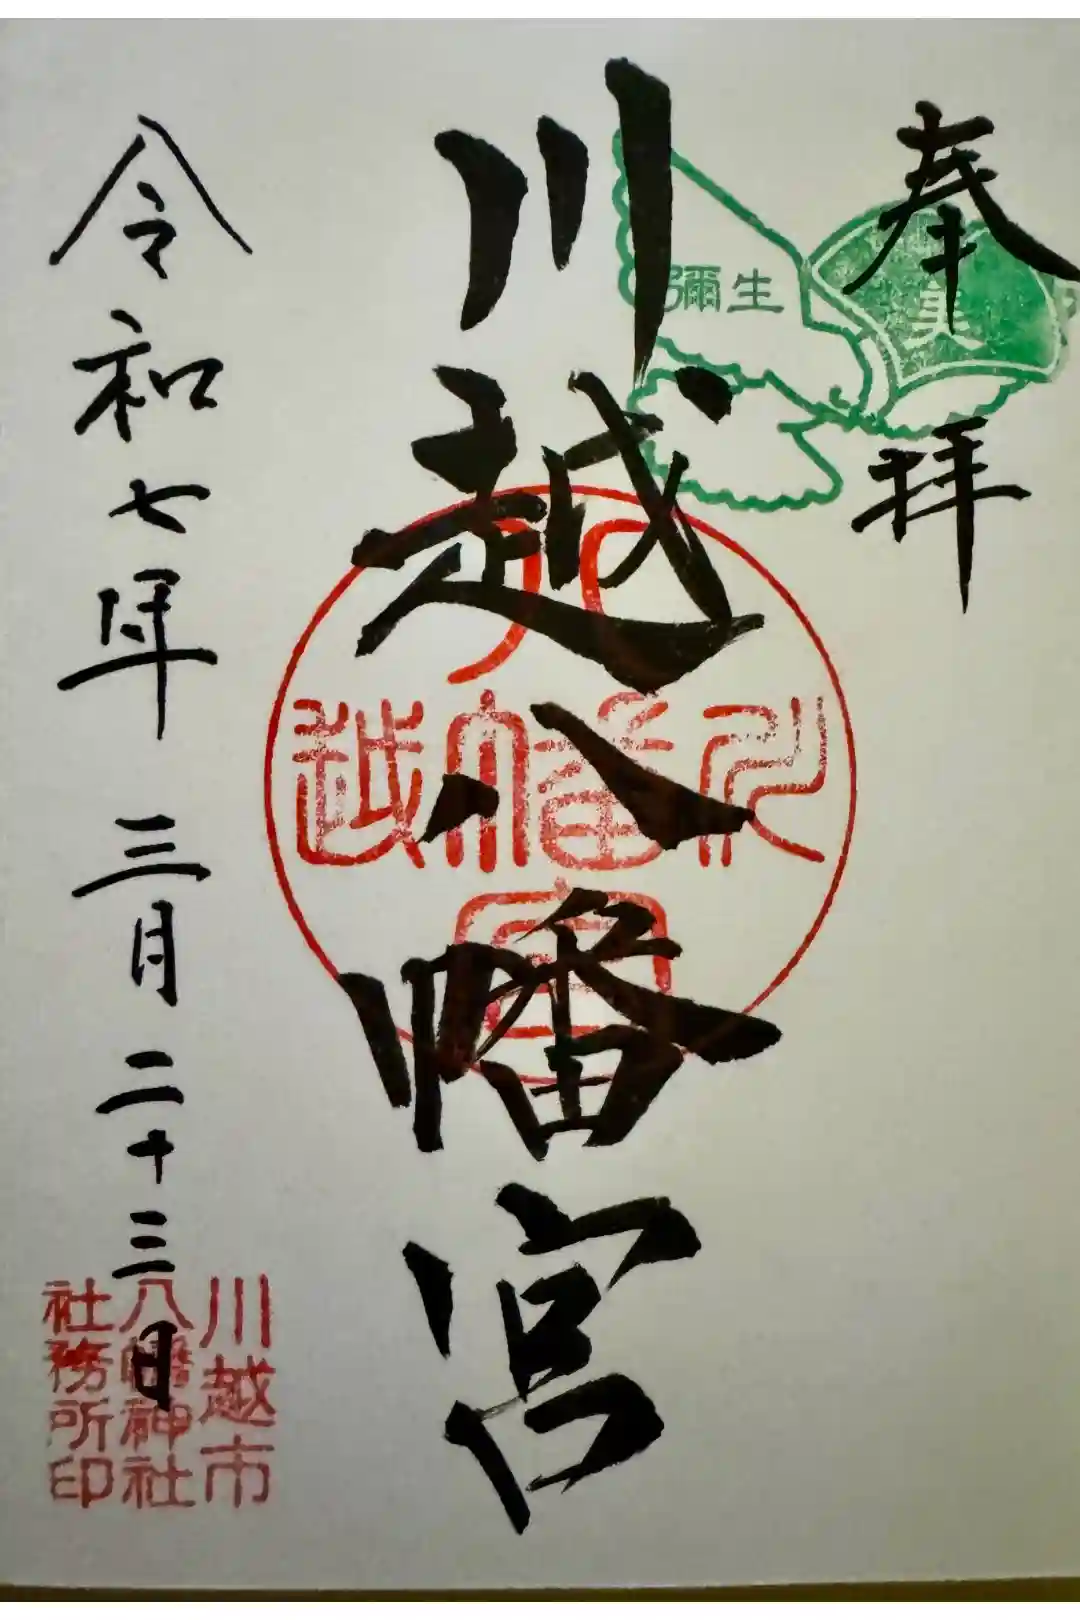 奉拝
彌生
美
川越八幡宮
八
川幡越
宮
令和七年三月二十三日
川越市
八幡神社
社務所印